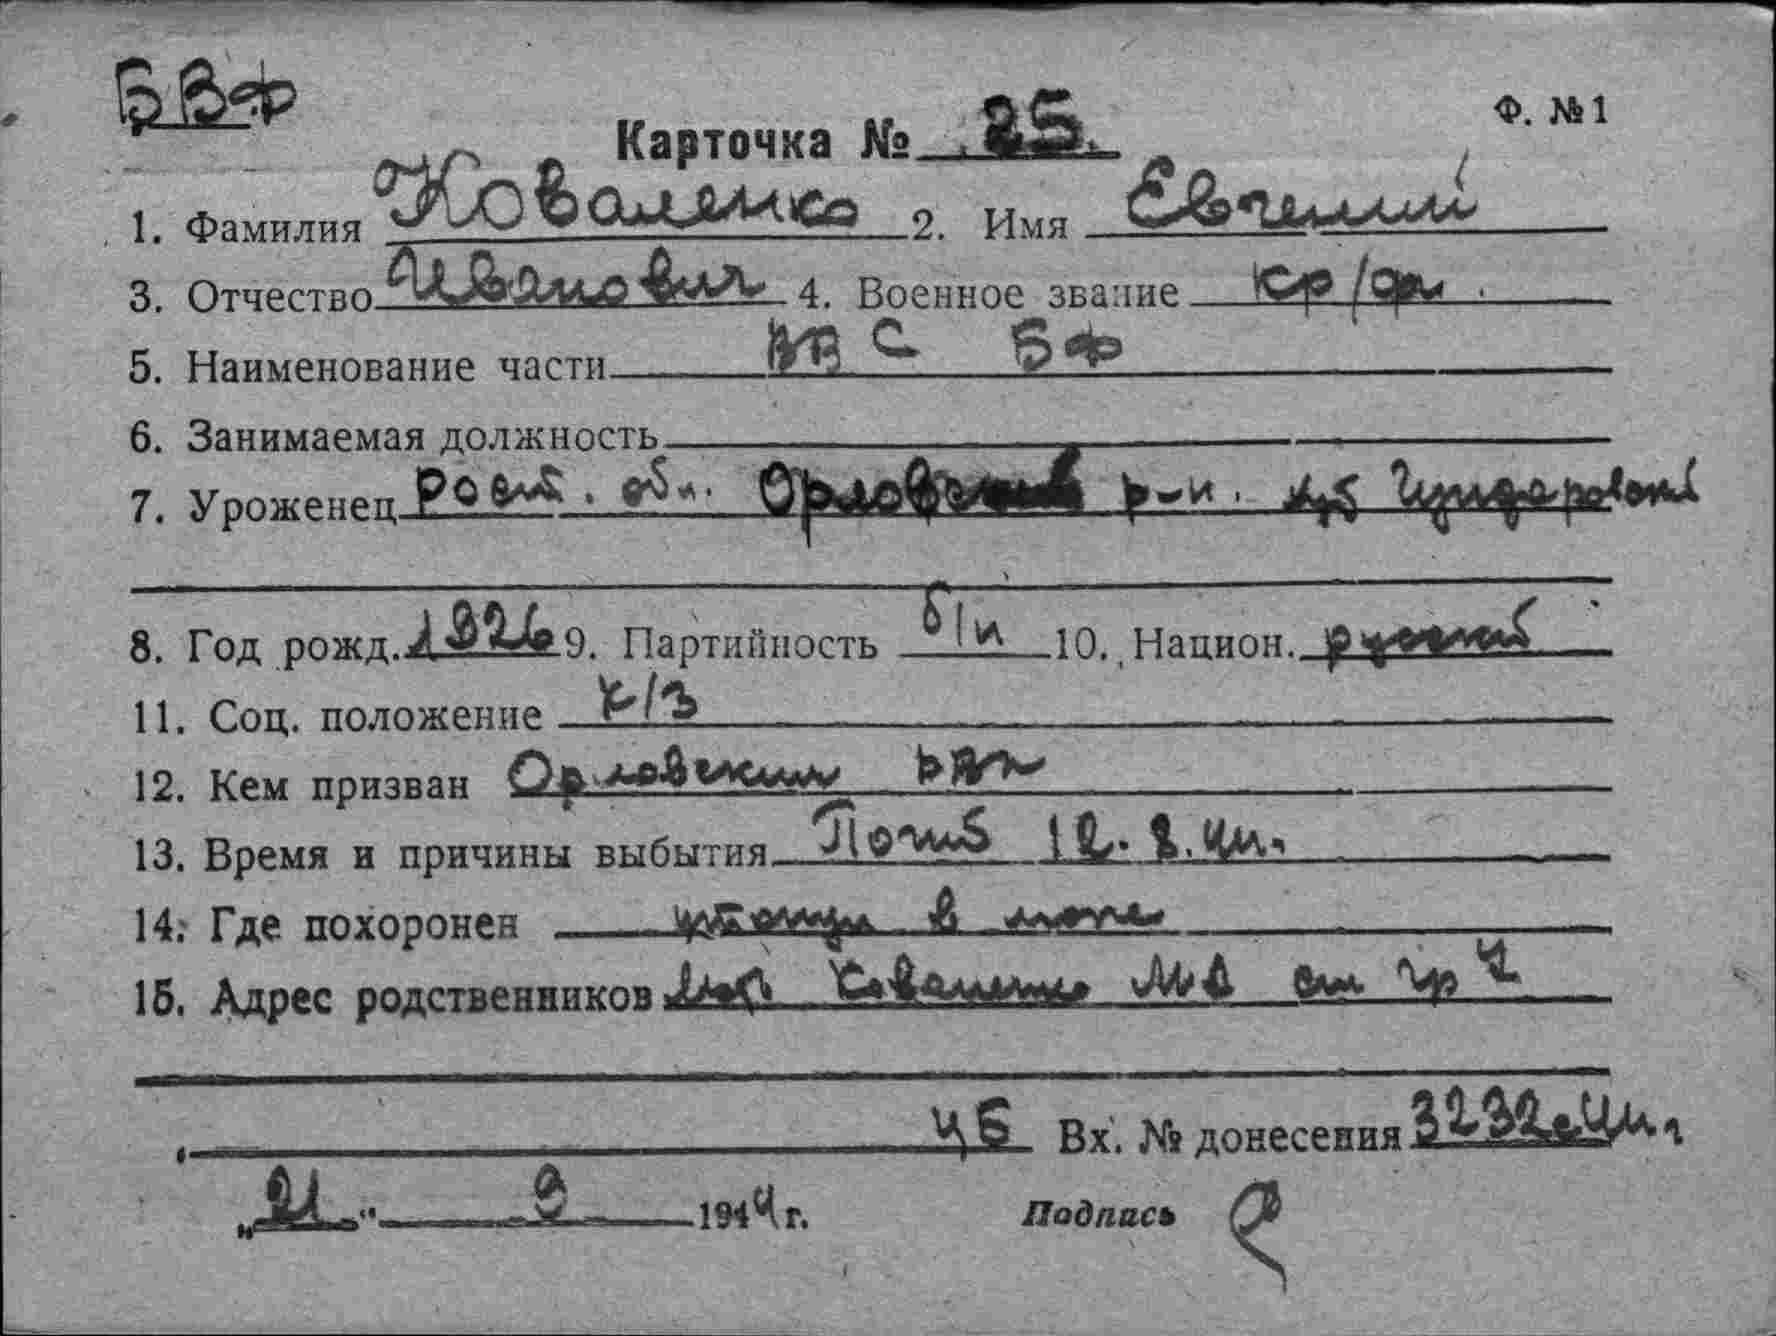 БВФ
Ф. №1
Карточка № 25.
1. Фамилия Коваленко 2. Имя Евгений
3. Отчество Иванович 4. Военное звание кр/фл.
5. Наименование части ВВС БФ
6. Занимаемая должность
7. Уроженец Рост. обл. Орловский р-н. хут Гундоровский
8. Год рожд. 1926 9. Партийность б/п 10. Национ. русский
11. Соц. положение к/з
12. Кем призван Орловским РВК
13. Время и причины выбытия Погиб 12. 8. 44г.
14. Где похоронен утонул в море
15. Адрес родственников Коваленко
Вх. № донесения 3232с 44г
„21" 9 1944 г. Подпись